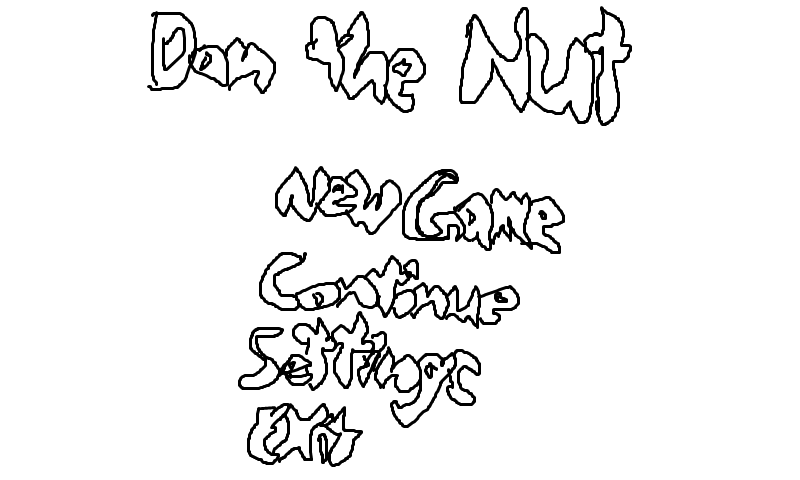 Dan the Nut
New Game
Continue
Settings
Exit